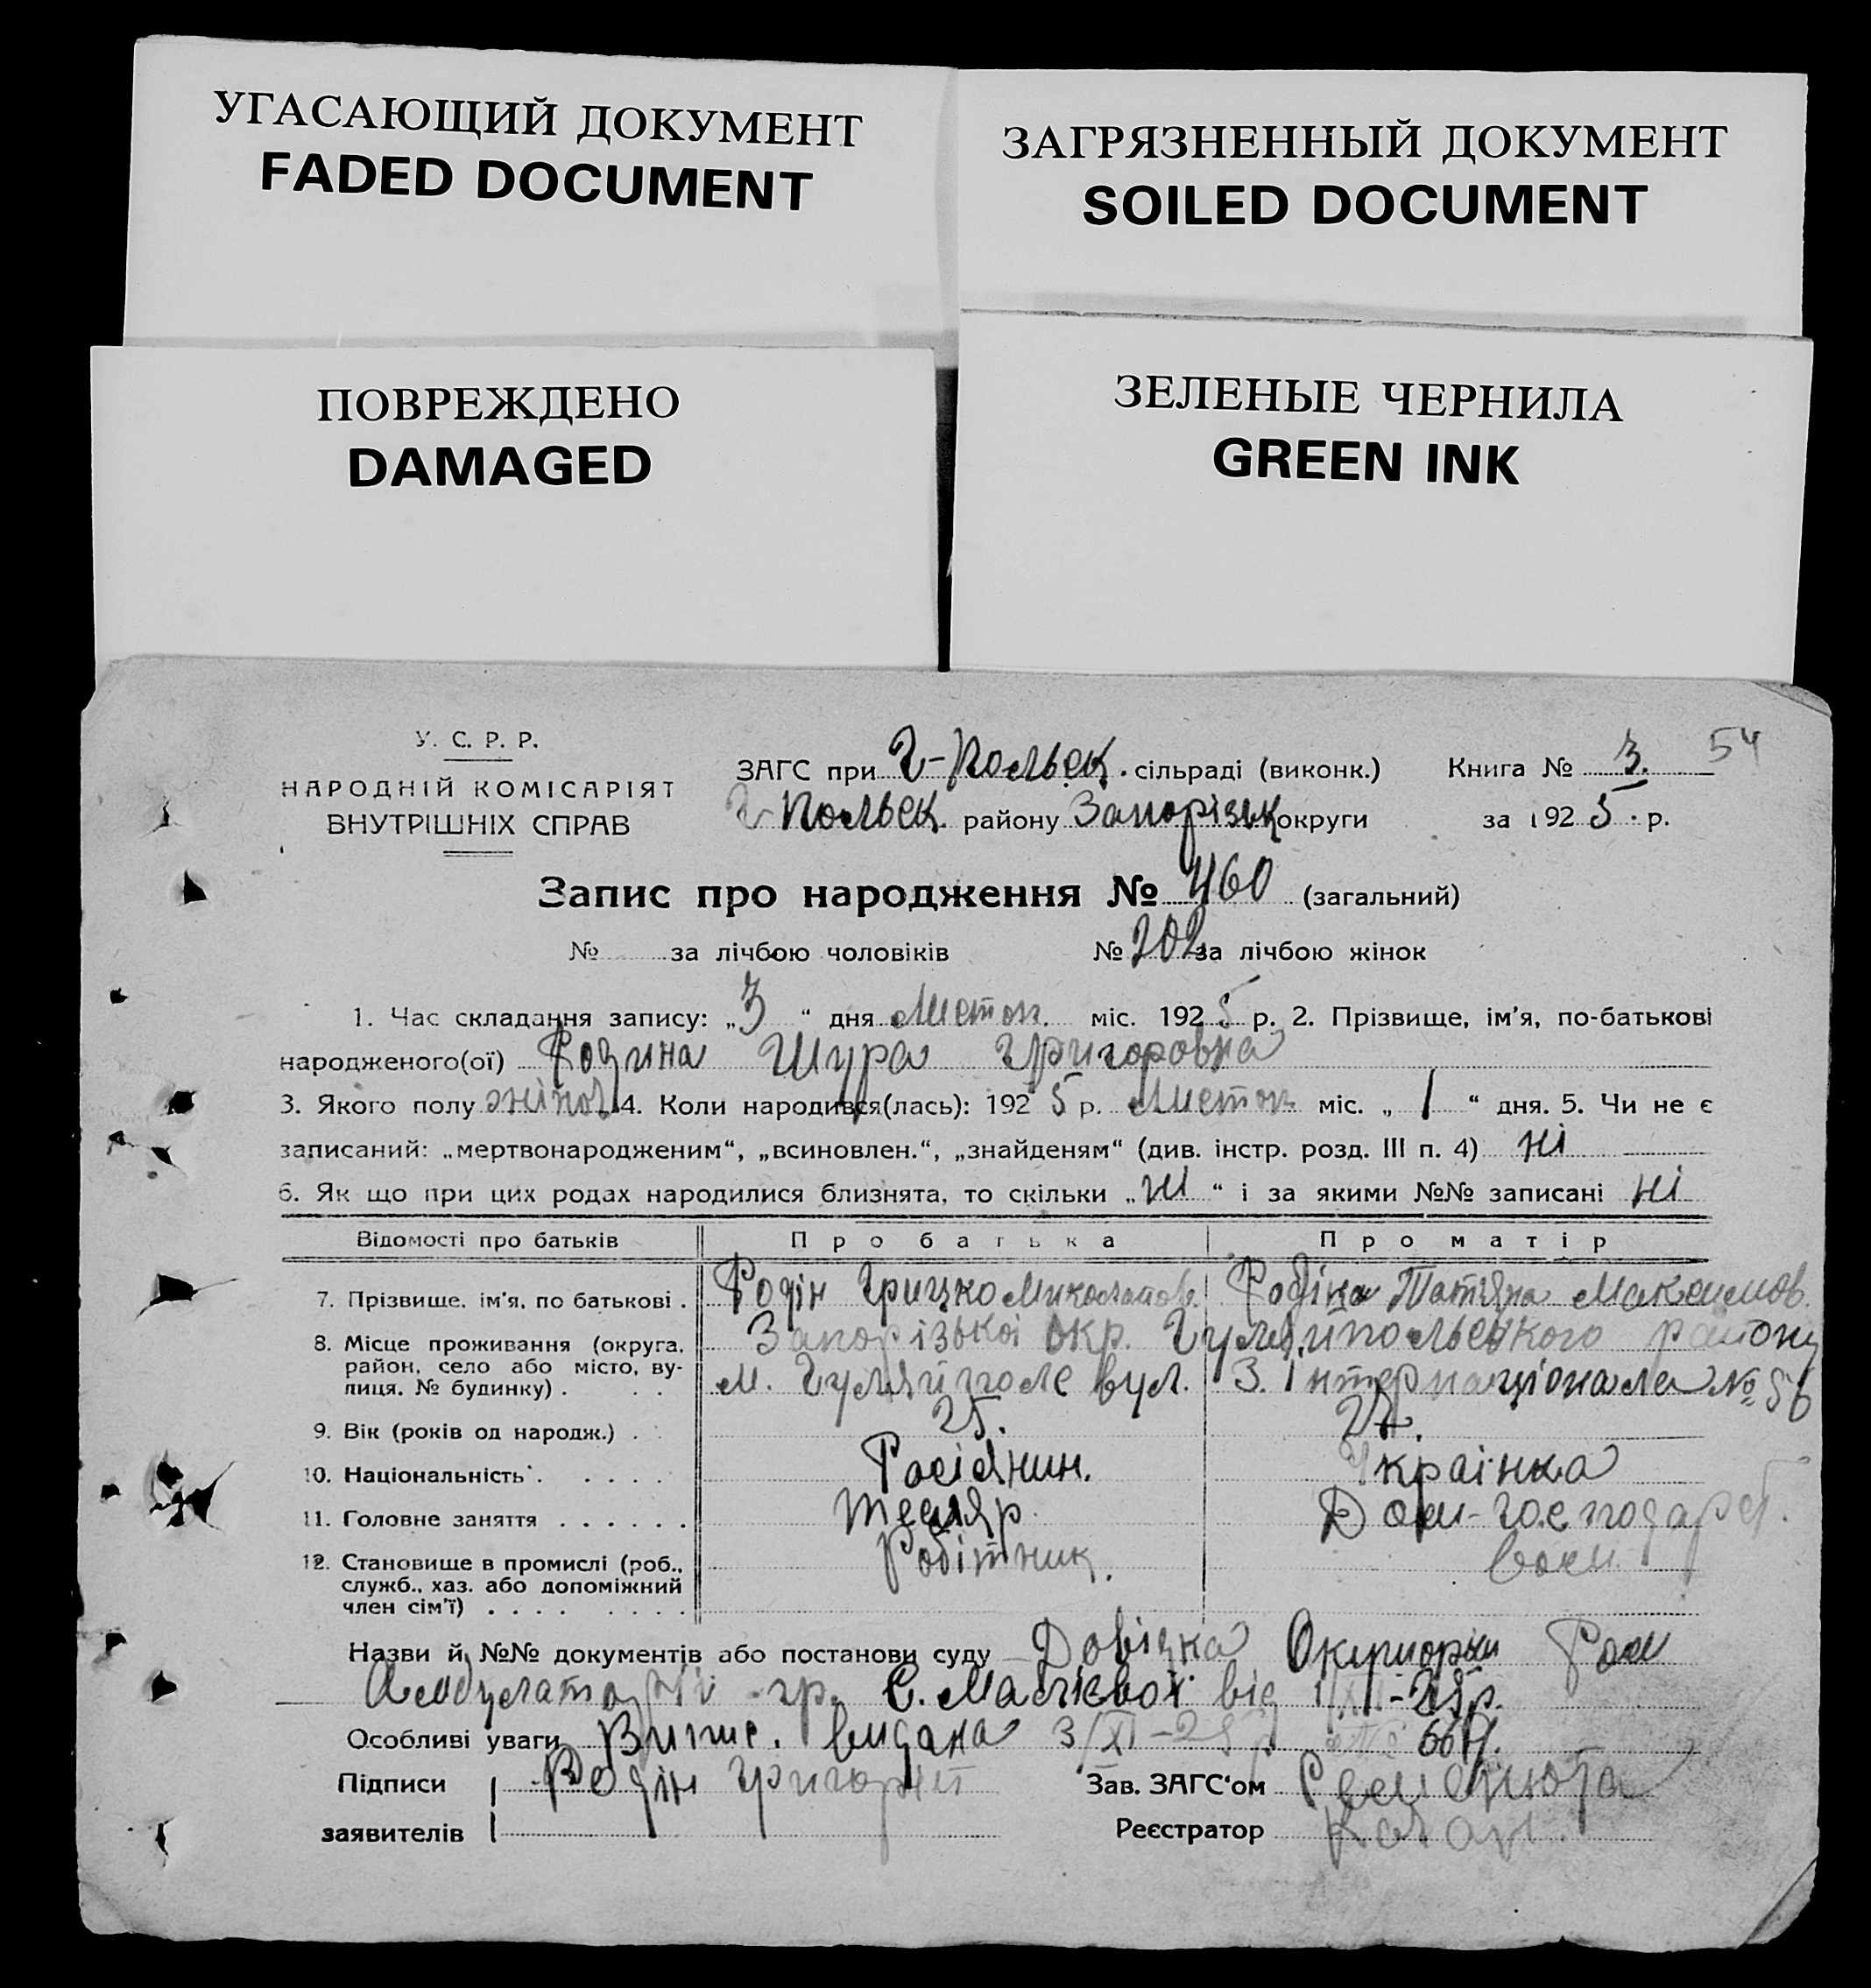 УГАСАЮЩИЙ ДОКУМЕНТ
FADED DOCUMENT
ЗАГРЯЗНЕННЫЙ ДОКУМЕНТ
SOILED DOCUMENT
ПОВРЕЖДЕНО
DAMAGED
ЗЕЛЕНЫЕ ЧЕРНИЛА
GREEN INK
У. С. Р. Р.
НАРОДНІЙ КОМІСАРІЯТ
ВНУТРІШНІХ СПРАВ
ЗАГС при Г-Польськ. сільраді (виконк.) Книга № 3. 54
Г-Польськ. району Запорізьк округи за 1925. р.
Запис про народження № 460 (загальний)
№ за лічбою чоловіків № 202 за лічбою жінок
1. Час складання запису: „3“ дня Листоп. міс. 1925 р. 2. Прізвище, ім'я, по-батькові
народженого(ої) Родина Шура Григоровна
3. Якого полу жіноч 4. Коли народився(лась): 1925 р. Листоп міс. „1“ дня. 5. Чи не є
записаний: „мертвонародженим“, „всиновлен.“, „знайденям“ (див. інстр. розд. III п. 4) ні
6. Як що при цих родах народилися близнята, то скільки „ні“ і за якими №№ записані ні
Відомості про батьків Про батька Про матір
7. Прізвище, ім'я, по батькові . Родін Грицко Миколаіов. Родіна Татяна Максимов.
8. Місце проживання (округа, район, село або місто, вулиця, № будинку) . Запорізькоі окр. Гуляйпольского району
м. Гуляйполе вул. 3. Інтернаціонала № 56
9. Вік (років од народж.) . 25. 27.
10. Національність . Росіянин. Украінка
11. Головне заняття . . . . . . Тесляр Дом-господарст.
12. Становище в промислі (роб., служб., хаз. або допоміжний член сім'ї) . . . . Робітник.
Назви й №№ документів або постанови суду Довідка
Амбулаторіі гр. від -25р.
Особливі уваги Випис. видана 3/XI-25
Підписи Родін Григорий Зав. ЗАГС'ом
заявителів Реєстратор